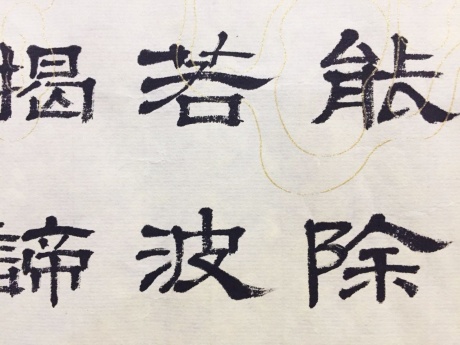 能除
若波
揭諦